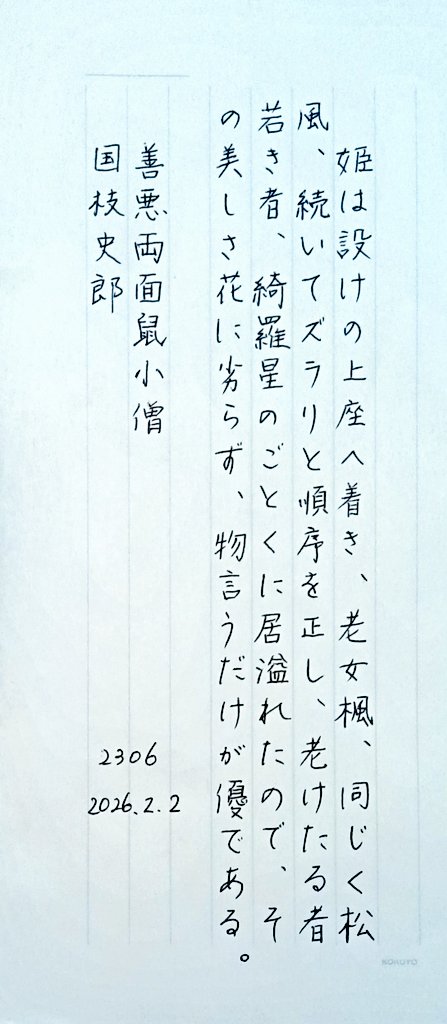 姫は設けの上座へ着き、老女楓、同じく松
風、続いてズラリと順序を正し、老けたる者
若き者、綺羅星のごとくに居溢れたので、そ
の美しさ花に劣らず、物言うだけが優である。
善悪両面鼠小僧
国枝史郎
2306
2026.2.2
KOKUYO